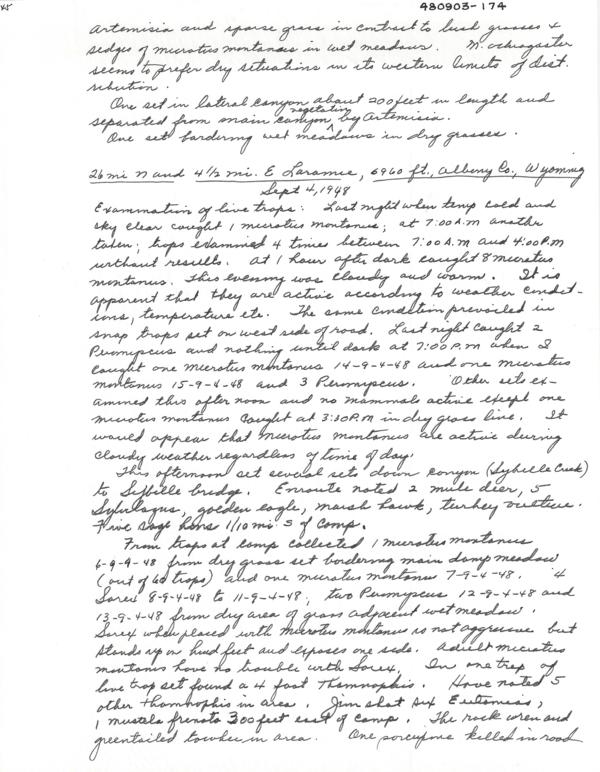 45
480903-174
Artemisia and sparse grass in contrast to lush grasses &
sedges of microtus montanus in wet meadows. M. ochrogaster
seems to prefer dry situations in its western limits of dist-
ribution.
One set in lateral canyon about 200 feet in length and
separated from main canyon vegetation by Artemisia.
One set bordering wet meadows in dry grasses.
26 mi N and 4 1/2 mi. E Laramie, 6960 ft., Albany Co., Wyoming
Sept 4, 1948
Examination of live traps: Last night when temp cold and
sky clear caught 1 microtus montanus; at 7:00 A.M another
taken; traps examined 4 times between 7:00 A.M and 4:00 P.M
without results. At 1 hour after dark caught 8 microtus
montanus. This evening was cloudy and warm. It is
apparent that they are active according to weather condit-
ions, temperature etc. The same condition prevailed in
snap traps set on west side of road. Last night caught 2
Peromyscus and nothing until dark at 7:00 P.M when I
caught one microtus montanus 14-9-4-48 and one microtus
montanus 15-9-4-48 and 3 Permyscus. Other sets ex-
amined this afternoon and no mammals active except one
microtus montanus caught at 3:30 P.M in dry grass live. It
would appear that microtus montanus are active during
cloudy weather regardless of time of day.
This afternoon set several sets down canyon (Sybille Creek)
to Sybille bridge. Enroute noted 2 mule deer, 5
Sylvilagus, golden eagle, marsh hawk, turkey vulture.
Five sage hens 1/10 mi S of camp.
From traps at camp collected 1 microtus montanus
6-9-4-48 from dry grass set bordering main damp meadow
(out of 60 traps) and one microtus montanus 7-9-4-48. 4
Sorex 8-9-4-48 to 11-9-4-48; two Permyscus 12-9-4-48 and
13-9-4-48 from dry area of grass adjacent wet meadow.
Sorex when placed with microtus montanus is not aggressive but
stands up on hind feet and exposes one side. Adult microtus
montanus have no trouble with Sorex. In one trap of
live trap set found a 4 foot Thamnophis. Have noted 5
other thamnophis in area. Jim shot six Eutamias,
1 mustela frenata 300 feet east of camp. The rock wren and
greentailed towhee in area. One porcupine killed in road